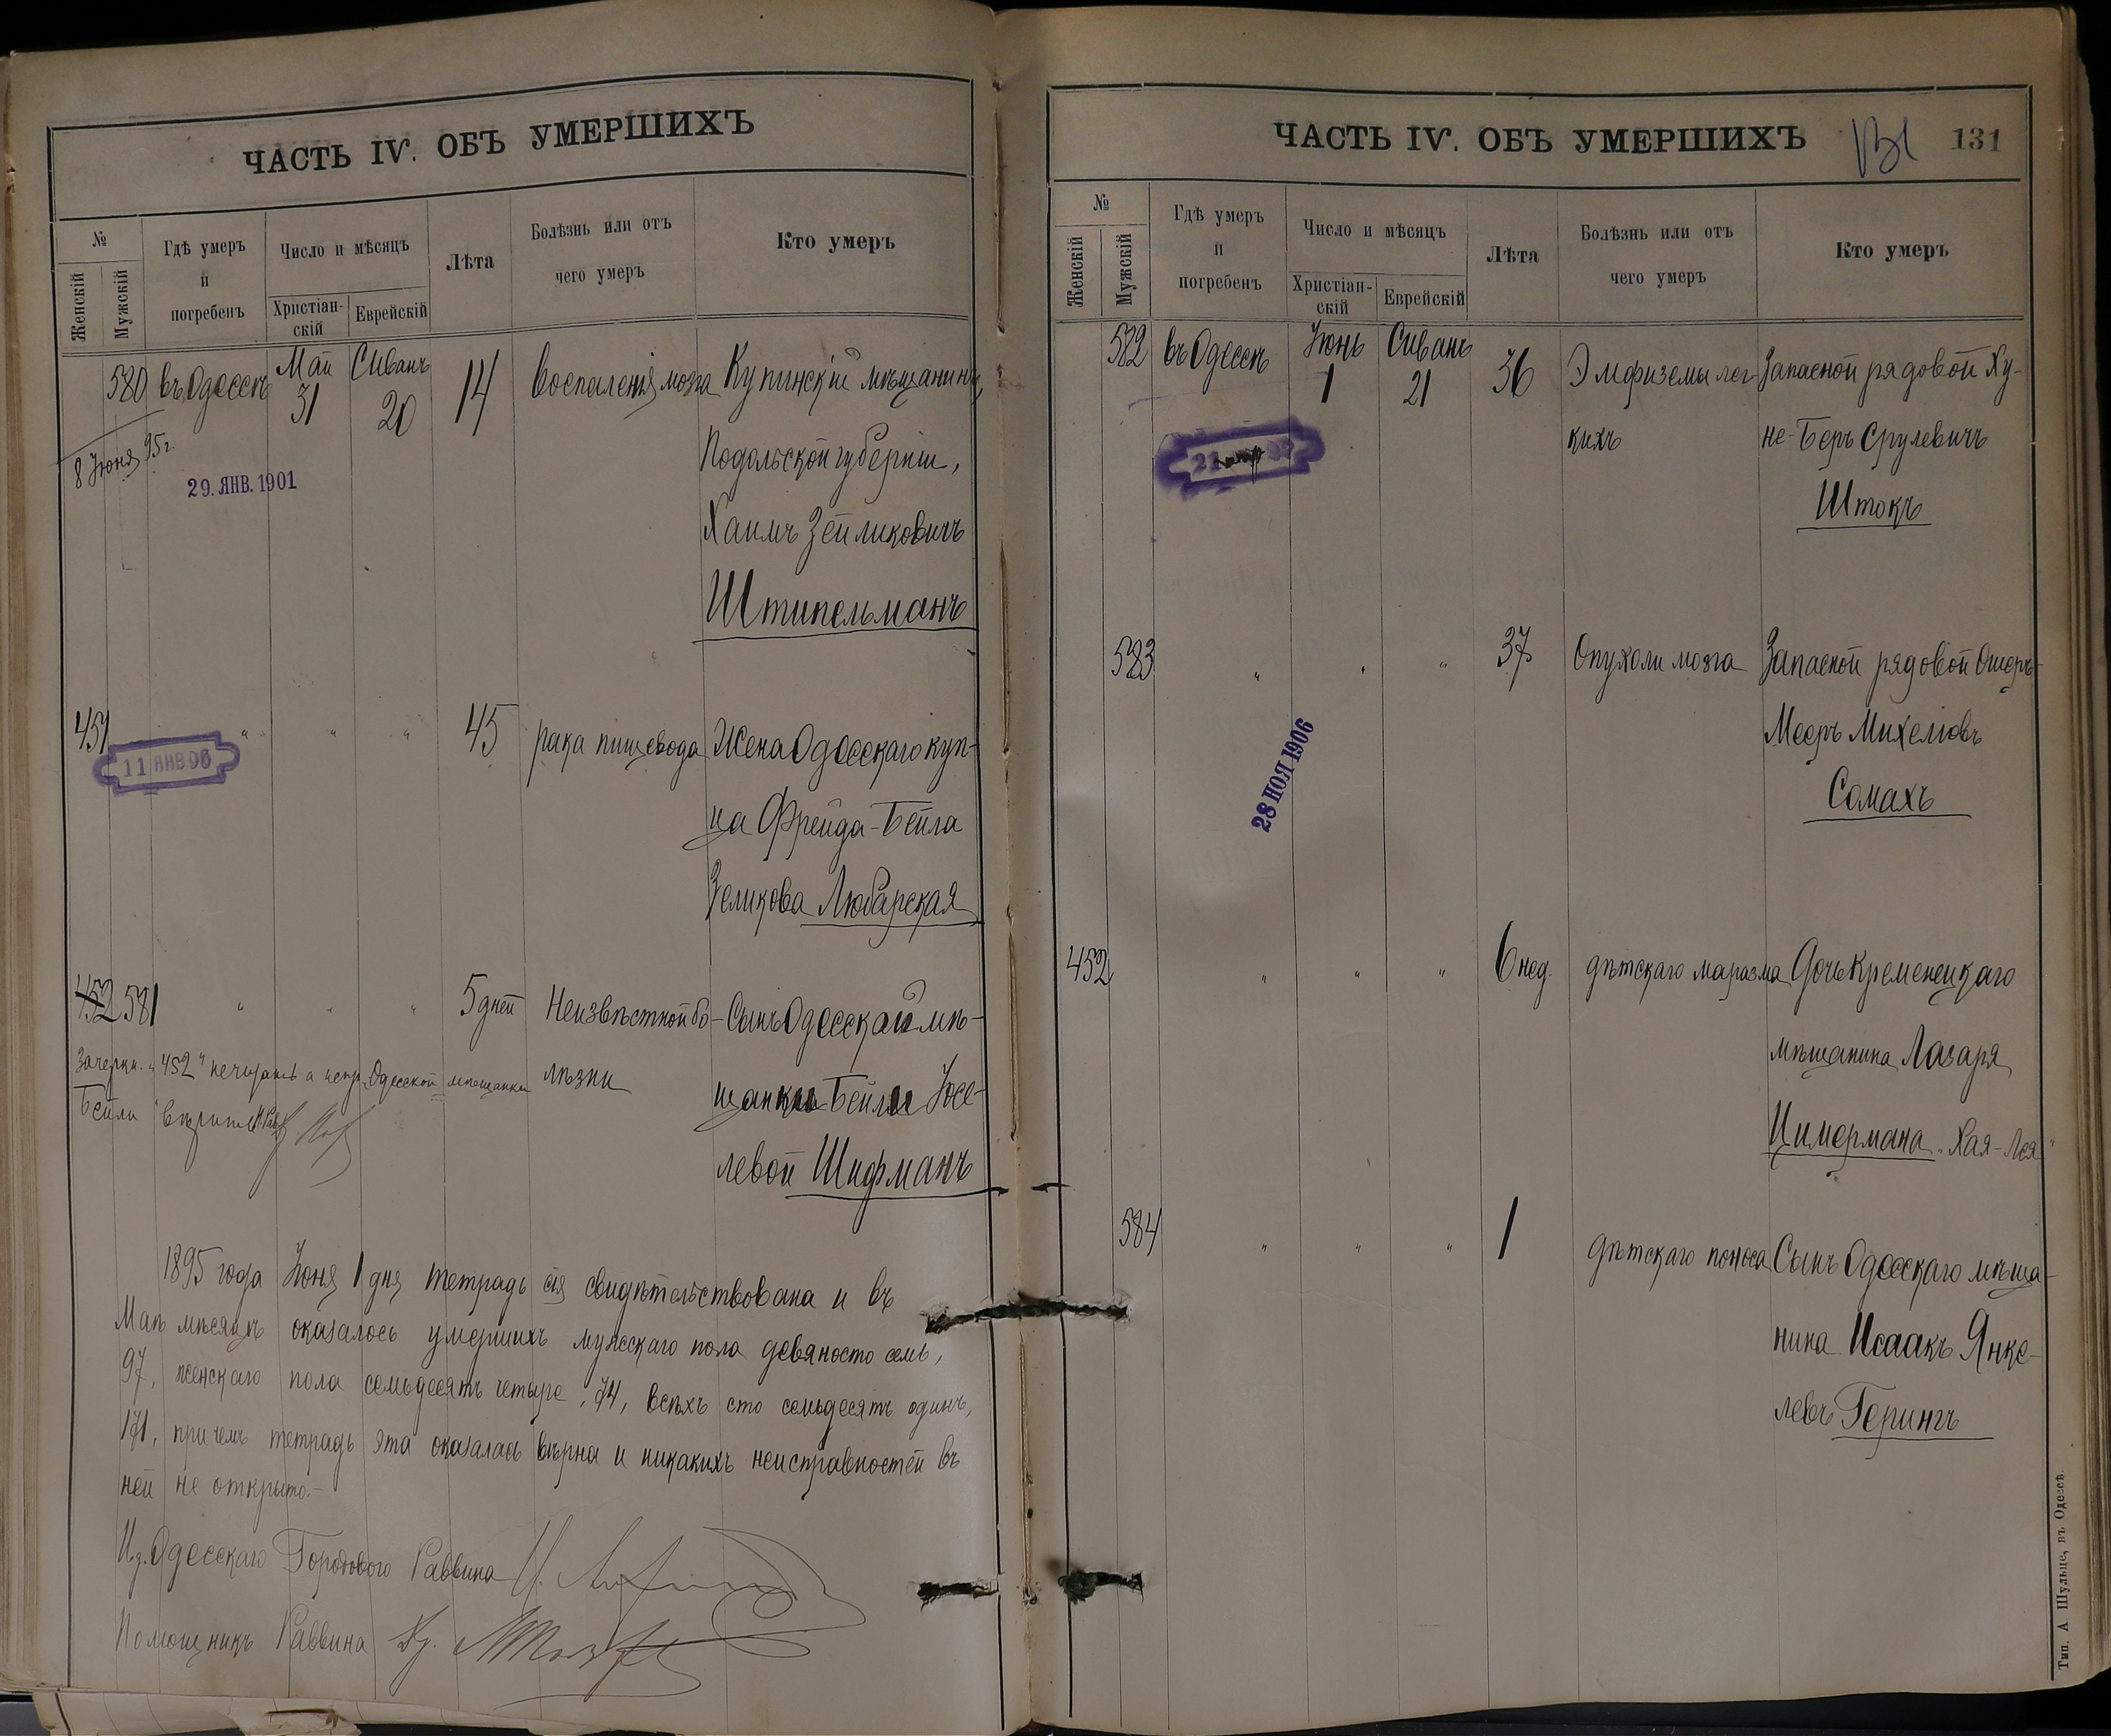 ЧАСТЬ IV. ОБЪ УМЕРШИХЪ
№
Женскій
Мужскій
Гдѣ умеръ
и
погребенъ
Число и мѣсяцъ
Христіан-
скій
Еврейскій
Лѣта
Болѣзнь или отъ
чего умеръ
Кто умеръ
580 въ Одессѣ Май 31 Сиванъ 20 14 Воспаленія мозга Купинскій мѣщанинъ,
Подольской губерніи,
Хаимъ Зейликовичъ
Штипельманъ
8 Іюня 95 г.
29. ЯНВ. 1901
451 " " " 45 рака пищевода Жена Одесскаго куп-
ца Фрейда-Бейла
Зеликова Любарская
11 ЯНВ 96
452 581 " " " 5 дней Неизвѣстной бо- Сынъ Одесской мѣ-
лѣзни щанки Бейли Іосе-
левой Шифманъ
Зачеркн. "452" не читать а испр. Одесской мѣщанки
Бейли вѣрить
1895 года Іюня 1 дня тетрадь сія свидѣтельствована и въ
Маѣ мѣсяцѣ оказалось умершихъ мужскаго пола девяносто семь,
97, женскаго пола семьдесятъ четыре, 74, всѣхъ сто семьдесятъ одинъ,
171, при чемъ тетрадь эта оказалась вѣрна и никакихъ неисправностей въ
ней не открыто.-
И.д. Одесскаго Городового Раввина
Помощникъ Раввина
ЧАСТЬ IV. ОБЪ УМЕРШИХЪ
131 131
№
Женскій
Мужскій
Гдѣ умеръ
и
погребенъ
Число и мѣсяцъ
Христіан-
скій
Еврейскій
Лѣта
Болѣзнь или отъ
чего умеръ
Кто умеръ
582 въ Одессѣ Іюнь 1 Сиванъ 21 36 Эмфиземы лег- Запасной рядовой Ху-
кихъ не-Беръ Срулевичъ
Штокъ
583 " " " 37 Опухоли мозга Запасной рядовой Ошеръ-
Мееръ Михелевъ
Сомахъ
28 НОЯ 1906
452 " " " 6 нед. дѣтскаго маразма Дочь Кременецкаго
мѣщанина Лазаря
Цимермана "Хая-Лея"
584 " " " 1 дѣтскаго поноса Сынъ Одесскаго мѣща-
нина Исаакъ Янке-
левъ Герингъ
Тип. А Шульце, въ Одессѣ.